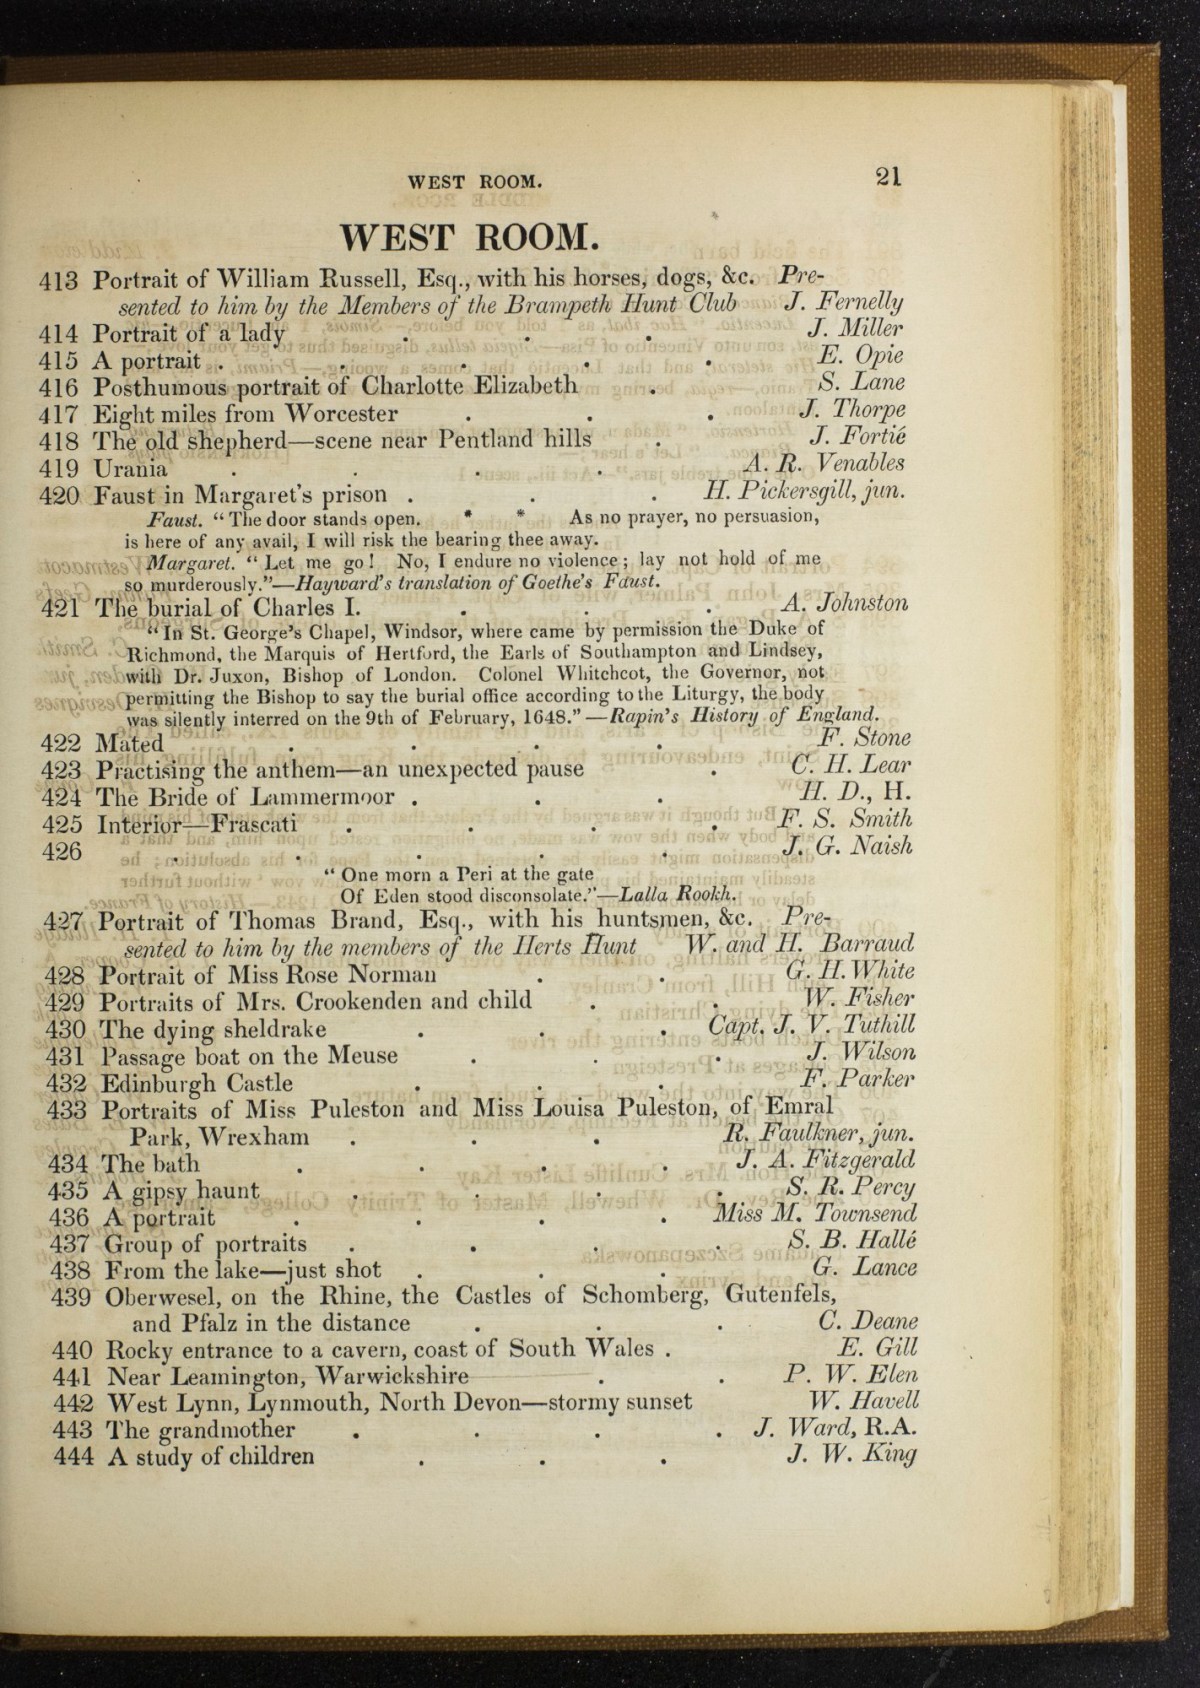 WEST ROOM. 21
WEST ROOM.
413 Portrait of William Russell, Esq., with his horses, dogs, &c. Pre-
sented to him by the Members of the Brampeth Hunt Club J. Fernelly
414 Portrait of a lady . . . J. Miller
415 A portrait . . . . . E. Opie
416 Posthumous portrait of Charlotte Elizabeth . S. Lane
417 Eight miles from Worcester . . . J. Thorpe
418 The old shepherd—scene near Pentland hills . J. Fortié
419 Urania . . . . A. R. Venables
420 Faust in Margaret's prison . . . H. Pickersgill, jun.
Faust. “The door stands open. * * As no prayer, no persuasion,
is here of any avail, I will risk the bearing thee away.
Margaret. “Let me go! No, I endure no violence; lay not hold of me
so murderously.”—Hayward's translation of Goethe's Faust.
421 The burial of Charles I. . . . A. Johnston
“In St. George's Chapel, Windsor, where came by permission the Duke of
Richmond, the Marquis of Hertford, the Earls of Southampton and Lindsey,
with Dr. Juxon, Bishop of London. Colonel Whitchcot, the Governor, not
permitting the Bishop to say the burial office according to the Liturgy, the body
was silently interred on the 9th of February, 1648.”—Rapin's History of England.
422 Mated . . . . F. Stone
423 Practising the anthem—an unexpected pause . C. H. Lear
424 The Bride of Lammermoor . . . H. D., H.
425 Interior—Frascati . . . . F. S. Smith
426 . . . . . J. G. Naish
“One morn a Peri at the gate
Of Eden stood disconsolate.”—Lalla Rookh.
427 Portrait of Thomas Brand, Esq., with his huntsmen, &c. Pre-
sented to him by the members of the Herts Hunt W. and H. Barraud
428 Portrait of Miss Rose Norman . . G. H. White
429 Portraits of Mrs. Crookenden and child . . W. Fisher
430 The dying sheldrake . . . Capt. J. V. Tuthill
431 Passage boat on the Meuse . . . J. Wilson
432 Edinburgh Castle . . . F. Parker
433 Portraits of Miss Puleston and Miss Louisa Puleston, of Emral
Park, Wrexham . . . R. Faulkner, jun.
434 The bath . . . . J. A. Fitzgerald
435 A gipsy haunt . . . . S. R. Percy
436 A portrait . . . . Miss M. Townsend
437 Group of portraits . . . . S. B. Hallé
438 From the lake—just shot . . . G. Lance
439 Oberwesel, on the Rhine, the Castles of Schomberg, Gutenfels,
and Pfalz in the distance . . . C. Deane
440 Rocky entrance to a cavern, coast of South Wales . E. Gill
441 Near Leamington, Warwickshire . . P. W. Elen
442 West Lynn, Lynmouth, North Devon—stormy sunset W. Havell
443 The grandmother . . . . J. Ward, R.A.
444 A study of children . . . J. W. King